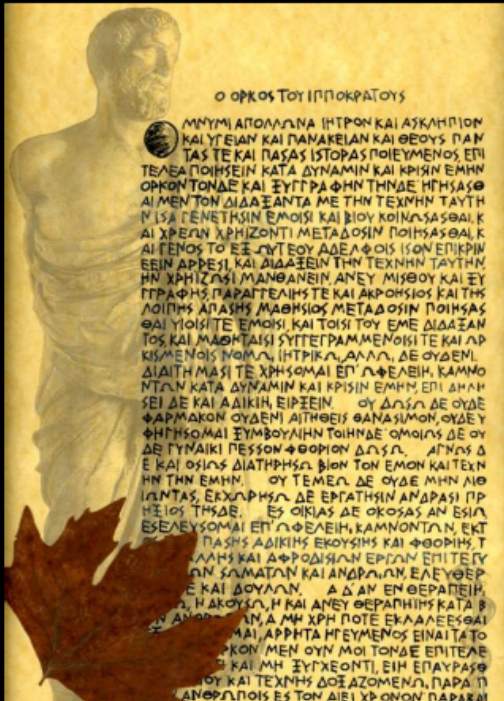 Ο ΟΡΚΟΣ ΤΟΥ ΙΠΠΟΚΡΑΤΟΥΣ
ΟΜΝΥΜΙ ΑΠΟΛΛΩΝΑ ΙΗΤΡΟΝ ΚΑΙ ΑΣΚΛΗΠΙΟΝ
ΚΑΙ ΥΓΕΙΑΝ ΚΑΙ ΠΑΝΑΚΕΙΑΝ ΚΑΙ ΘΕΟΥΣ ΠΑΝ
ΤΑΣ ΤΕ ΚΑΙ ΠΑΣΑΣ ΙΣΤΟΡΑΣ ΠΟΙΕΥΜΕΝΟΣ, ΕΠΙ
ΤΕΛΕΑ ΠΟΙΗΣΕΙΝ ΚΑΤΑ ΔΥΝΑΜΙΝ ΚΑΙ ΚΡΙΣΙΝ ΕΜΗΝ
ΟΡΚΟΝ ΤΟΝΔΕ ΚΑΙ ΞΥΓΓΡΑΦΗΝ ΤΗΝΔΕ ΗΓΗΣΑΣΘ
ΑΙ ΜΕΝ ΤΟΝ ΔΙΔΑΞΑΝΤΑ ΜΕ ΤΗΝ ΤΕΧΝΗΝ ΤΑΥΤΗ
Ν ΙΣΑ ΓΕΝΕΤΗΣΙΝ ΕΜΟΙΣΙ ΚΑΙ ΒΙΟΥ ΚΟΙΝΩΣΑΣΘΑΙ, Κ
ΑΙ ΧΡΕΩΝ ΧΡΗΙΖΟΝΤΙ ΜΕΤΑΔΟΣΙΝ ΠΟΙΗΣΑΣΘΑΙ, Κ
ΑΙ ΓΕΝΟΣ ΤΟ ΕΞ ΩΥΤΕΟΥ ΑΔΕΛΦΟΙΣ ΙΣΟΝ ΕΠΙΚΡΙΝ
ΕΕΙΝ ΑΡΡΕΣΙ, ΚΑΙ ΔΙΔΑΞΕΙΝ ΤΗΝ ΤΕΧΝΗΝ ΤΑΥΤΗΝ,
ΗΝ ΧΡΗΙΖΩΣΙ ΜΑΝΘΑΝΕΙΝ, ΑΝΕΥ ΜΙΣΘΟΥ ΚΑΙ ΞΥ
ΓΓΡΑΦΗΣ, ΠΑΡΑΓΓΕΛΙΗΣ ΤΕ ΚΑΙ ΑΚΡΟΗΣΙΟΣ ΚΑΙ ΤΗΣ
ΛΟΙΠΗΣ ΑΠΑΣΗΣ ΜΑΘΗΣΙΟΣ ΜΕΤΑΔΟΣΙΝ ΠΟΙΗΣΑΣ
ΘΑΙ ΥΙΟΙΣΙ ΤΕ ΕΜΟΙΣΙ, ΚΑΙ ΤΟΙΣΙ ΤΟΥ ΕΜΕ ΔΙΔΑΞΑΝ
ΤΟΣ, ΚΑΙ ΜΑΘΗΤΑΙΣΙ ΣΥΓΓΕΓΡΑΜΜΕΝΟΙΣΙ ΤΕ ΚΑΙ ΩΡ
ΚΙΣΜΕΝΟΙΣ ΝΟΜΩ, ΙΗΤΡΙΚΩ, ΑΛΛΩ, ΔΕ ΟΥΔΕΝΙ.
ΔΙΑΙΤΗΜΑΣΙ ΤΕ ΧΡΗΣΟΜΑΙ ΕΠ' ΩΦΕΛΕΙΗ, ΚΑΜΝΟ
ΝΤΩΝ ΚΑΤΑ ΔΥΝΑΜΙΝ ΚΑΙ ΚΡΙΣΙΝ ΕΜΗΝ, ΕΠΙ ΔΗΛΗ
ΣΕΙ ΔΕ ΚΑΙ ΑΔΙΚΙΗ, ΕΙΡΞΕΙΝ. ΟΥ ΔΩΣΩ ΔΕ ΟΥΔΕ
ΦΑΡΜΑΚΟΝ ΟΥΔΕΝΙ ΑΙΤΗΘΕΙΣ ΘΑΝΑΣΙΜΟΝ, ΟΥΔΕ Υ
ΦΗΓΗΣΟΜΑΙ ΞΥΜΒΟΥΛΙΗΝ ΤΟΙΗΝΔΕ· ΟΜΟΙΩΣ ΔΕ ΟΥ
ΔΕ ΓΥΝΑΙΚΙ ΠΕΣΣΟΝ ΦΘΟΡΙΟΝ ΔΩΣΩ. ΑΓΝΩΣ Δ
Ε ΚΑΙ ΟΣΙΩΣ ΔΙΑΤΗΡΗΣΩ ΒΙΟΝ ΤΟΝ ΕΜΟΝ ΚΑΙ ΤΕΧΝ
ΗΝ ΤΗΝ ΕΜΗΝ. ΟΥ ΤΕΜΕΩ ΔΕ ΟΥΔΕ ΜΗΝ ΛΙΘ
ΙΩΝΤΑΣ, ΕΚΧΩΡΗΣΩ ΔΕ ΕΡΓΑΤΗΣΙΝ ΑΝΔΡΑΣΙ ΠΡ
ΗΞΙΟΣ ΤΗΣΔΕ. ΕΣ ΟΙΚΙΑΣ ΔΕ ΟΚΟΣΑΣ ΑΝ ΕΣΙΩ
ΕΣΕΛΕΥΣΟΜΑΙ ΕΠ' ΩΦΕΛΕΙΗ, ΚΑΜΝΟΝΤΩΝ, ΕΚΤ
ΠΑΣΗΣ ΑΔΙΚΙΗΣ ΕΚΟΥΣΙΗΣ ΚΑΙ ΦΘΟΡΙΗΣ, Τ
ΛΛΗΣ ΚΑΙ ΑΦΡΟΔΙΣΙΩΝ ΕΡΓΩΝ ΕΠΙ ΤΕ ΓΥ
ΩΝ ΣΩΜΑΤΩΝ ΚΑΙ ΑΝΔΡΩΙΩΝ, ΕΛΕΥΘΕΡ
ΤΕ ΚΑΙ ΔΟΥΛΩΝ. Α Δ' ΑΝ ΕΝ ΘΕΡΑΠΕΙΗ,
Η ΑΚΟΥΣΩ, Η ΚΑΙ ΑΝΕΥ ΘΕΡΑΠΗΙΗΣ ΚΑΤΑ Β
ΑΝΘΡΩΠΩΝ, Α ΜΗ ΧΡΗ ΠΟΤΕ ΕΚΛΑΛΕΕΣΘΑΙ
ΜΑΙ, ΑΡΡΗΤΑ ΗΓΕΥΜΕΝΟΣ ΕΙΝΑΙ ΤΑ ΤΟ
ΡΚΟΝ ΜΕΝ ΟΥΝ ΜΟΙ ΤΟΝΔΕ ΕΠΙΤΕΛΕ
ΚΑΙ ΜΗ ΞΥΓΧΕΟΝΤΙ, ΕΙΗ ΕΠΑΥΡΑΣΘ
ΟΥ ΚΑΙ ΤΕΧΝΗΣ ΔΟΞΑΖΟΜΕΝΩ, ΠΑΡΑ Π
ΑΝΘΡΩΠΟΙΣ ΕΣ ΤΟΝ ΑΙΕΙ ΧΡΟΝΟΝ ΠΑΡΑΒΑΙ